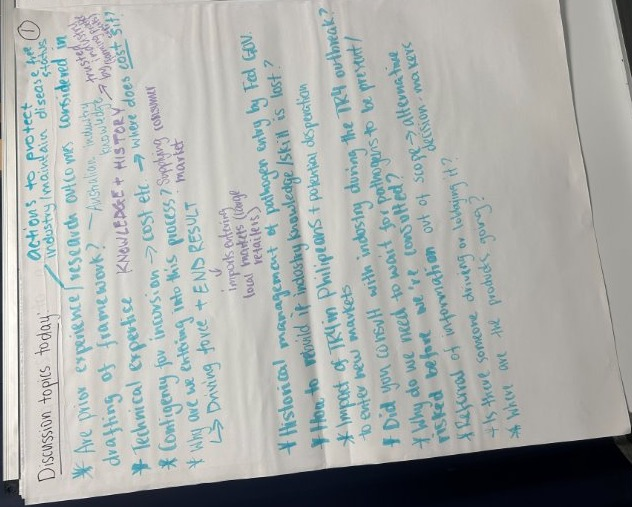 ①
Discussion topics today
actions to protect
industry, maintain disease free
status
* Are prior experience/research outcomes considered in
drafting of framework? - Australian industry
knowledge →
trusted
by
* Technical expertise KNOWLEDGE + HISTORY
* Contigency for incursion → cost etc → where does cost sit?
* Why are we entering into this process? Supplying consumer
market
↳ Driving force + END RESULT
↓
imports entering
local markets (large
retailers)
* Historical management of pathogen entry by Fed Gov.
* How to rebuild if industry knowledge/skill is lost?
* Impact of TR4 in Philipeans + potential desperation
to enter new markets
* Did you consult with industry during the TR4 outbreak?
* Why do we need to wait for pathogens to be present/
risked before we're consulted?
* Refusal of information out of scope → alternative
decision-makers
* Is there someone driving or lobbying it?
* Where are the products going?